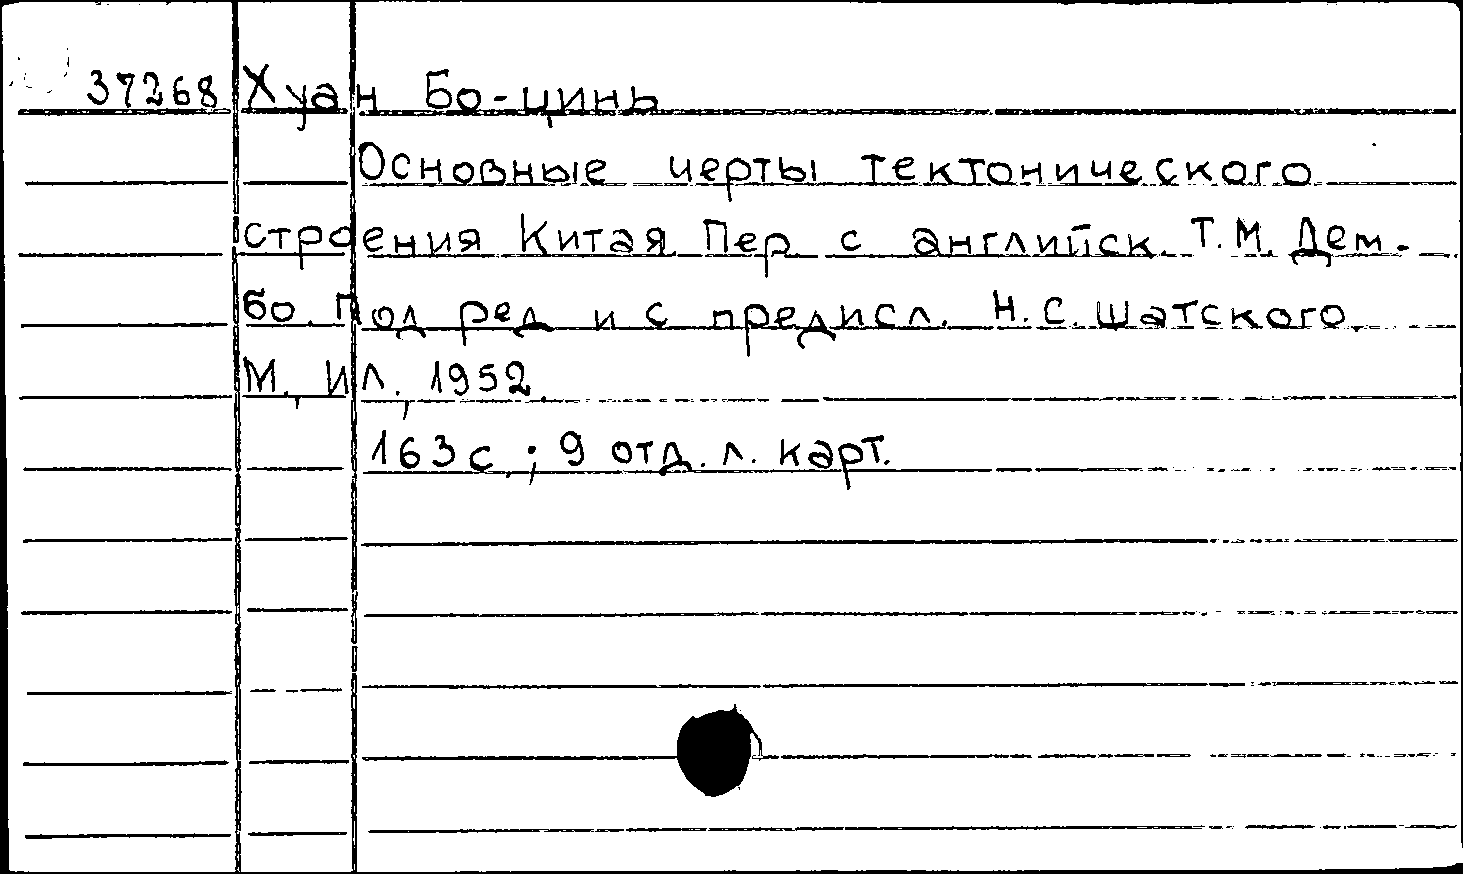 37268 Хуан Бо-цинь
Основные черты тектонического
строения Китая. Пер. с английск. Т.М. Дем-
бо. Под ред. и с предисл. Н.С. Шатского.
М., ИЛ., 1952.
163 с.; 9 отд. л. карт.